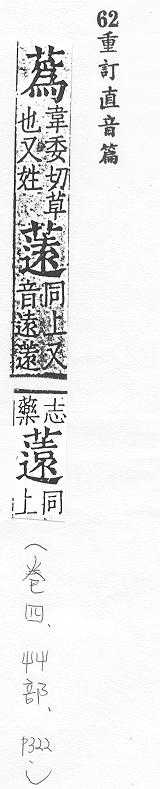 62重訂直音篇
蔿韋委切草也又姓薳同上又音遠薳
志藥薳同上
（卷四、艸部、P322。）